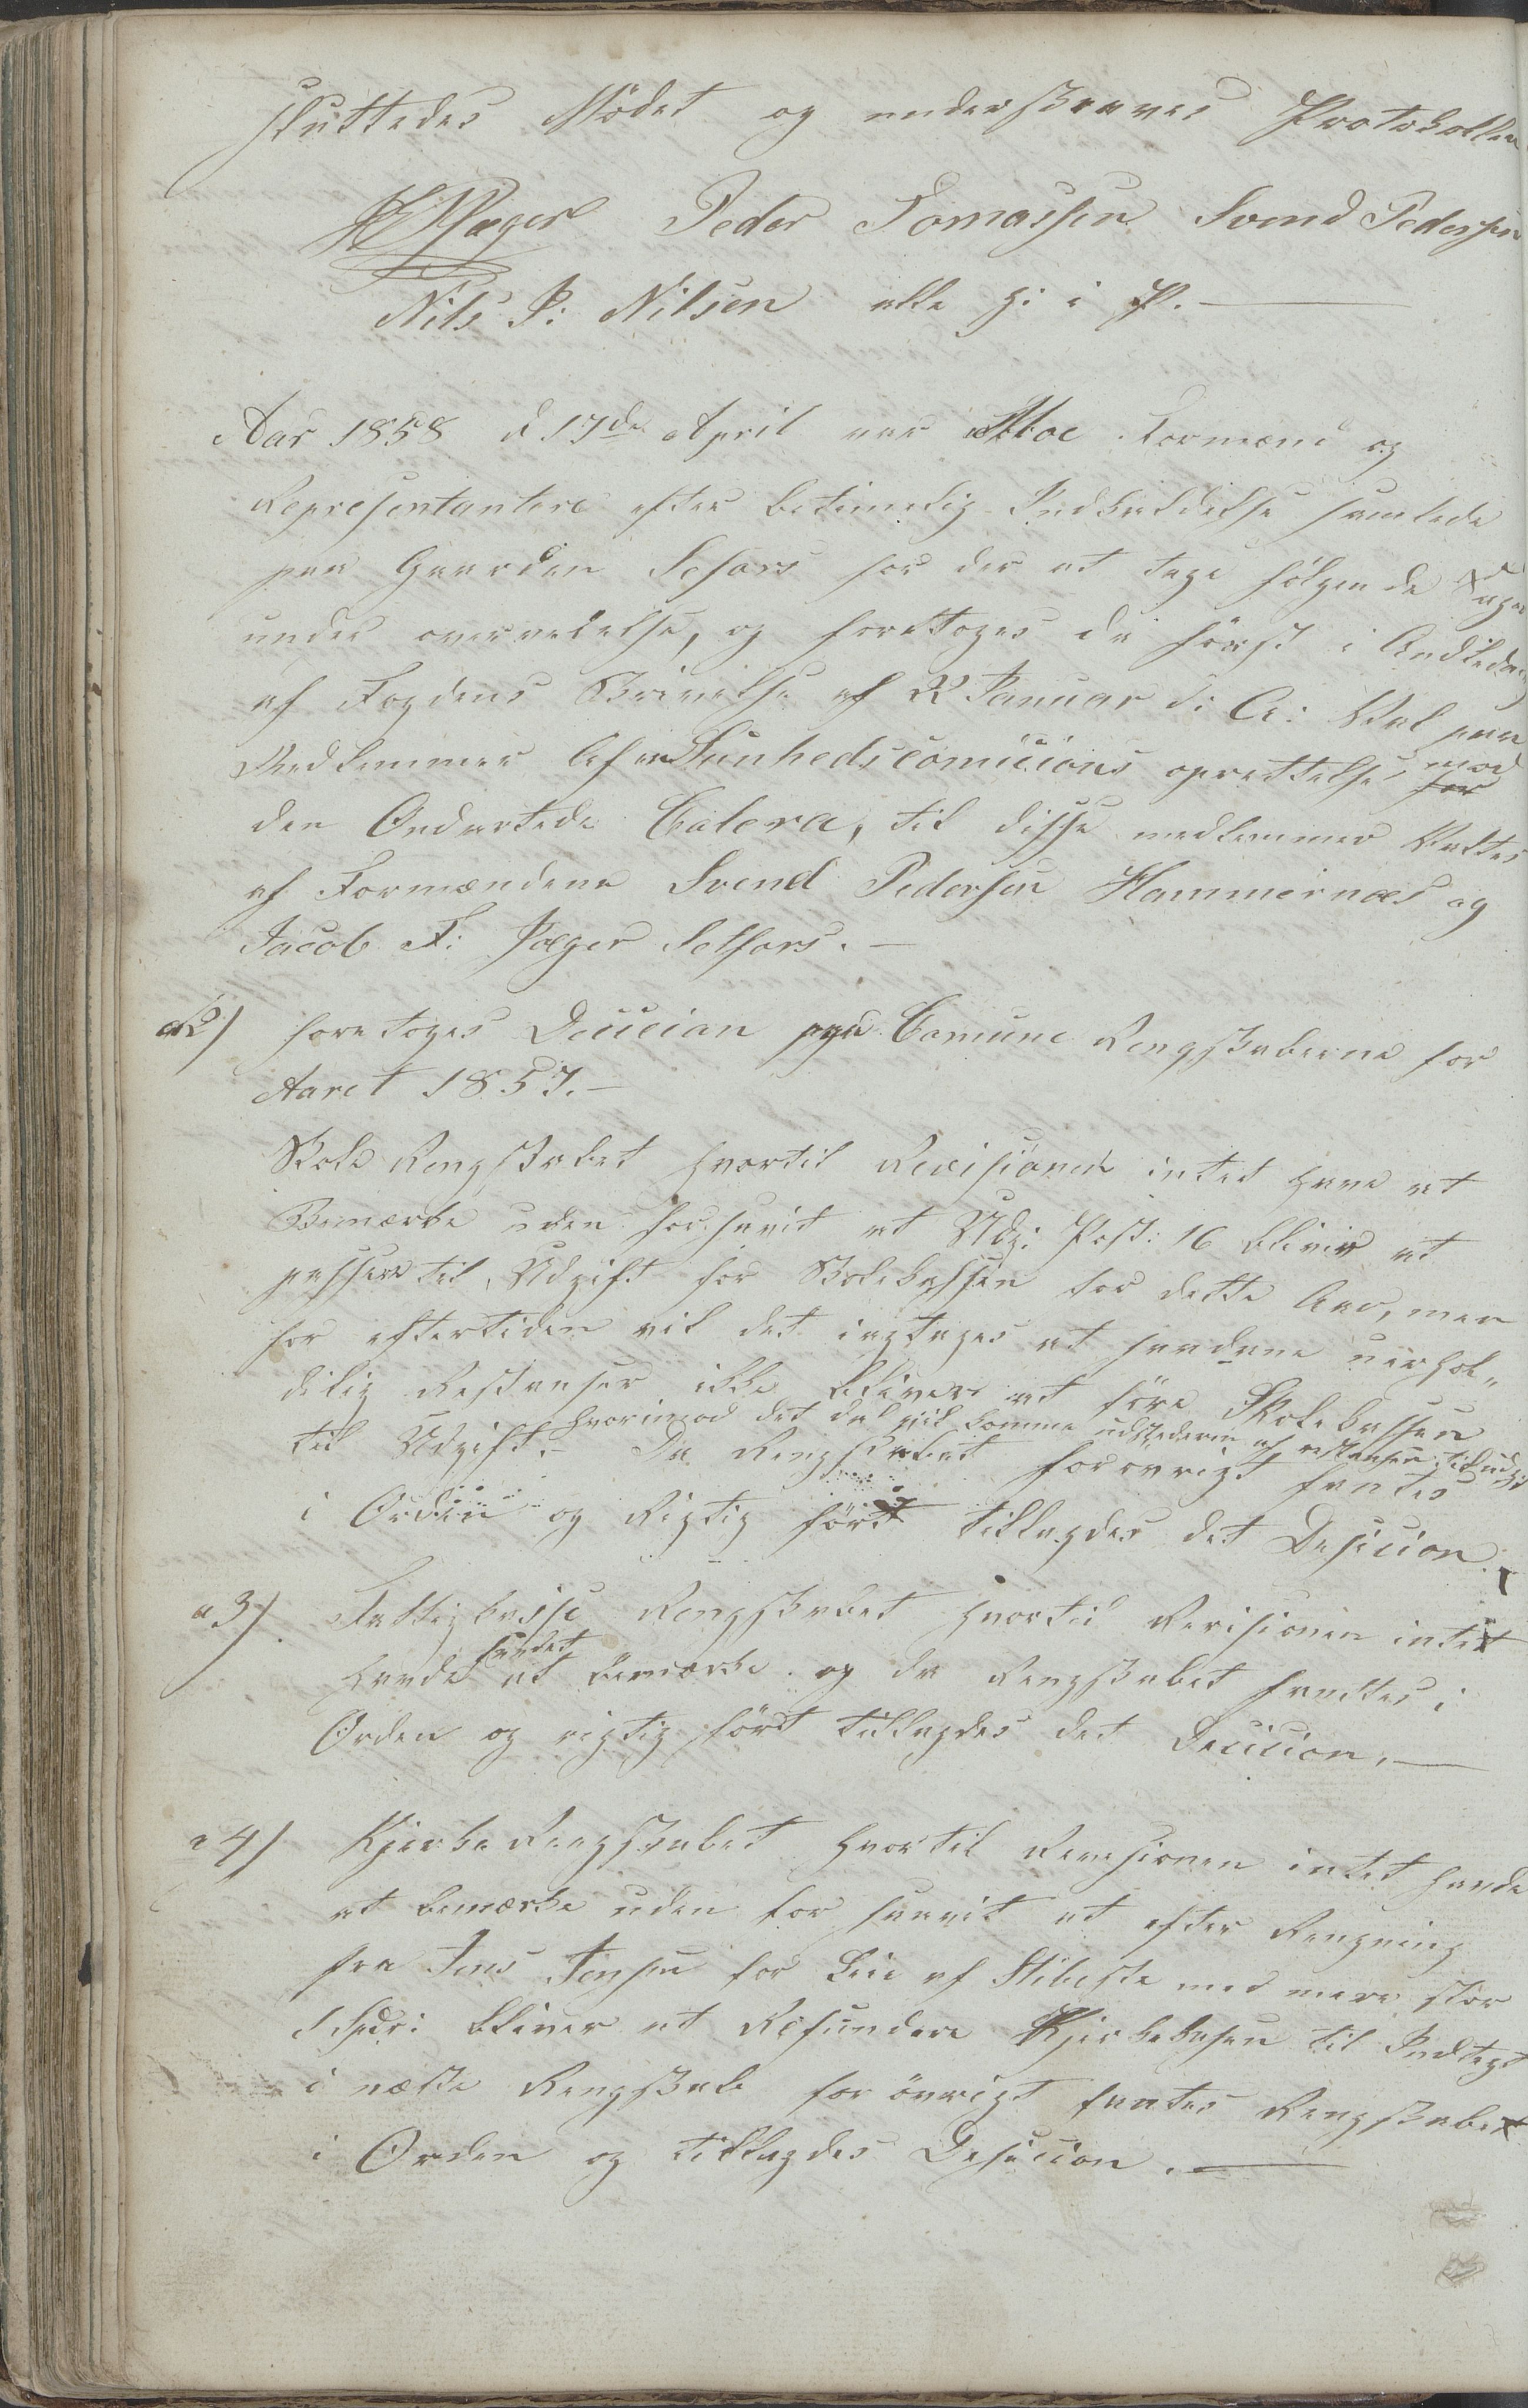 sluttedes Mödet og underskreves Protokollen
Jæger Peder Tomassen Svend Pedersen
Nils P: Nilsen alle H: i P. —
Aar 1858 d 17de April var Moe Formænd og
Representantere efter betimelig Indkaldelse samlede
paa Gaarden Selfors for der at tage følgende Sager
under overveielse, og foretoges da først i Andledning
af Fogdens Skrivelse af 22 Januar d: A: Valg paa
Medlemmer af en Sunhedscomicions oprettelse mod
den Ondartede Colera, til disse medlemmer Valtes
af Formændene Svend Pedersen Hammernæs og
Jacob F: Jæger Selfors. —
a 2) foretoges Decicion paa Comune Rengskaberne for
Aaret 1857. —
Skole Rengskabet hvortil Revisionen intet have at
Bemærke uden forsavit at Udg: Post: 16 bliver at
passere til Udgift for Skolekassen for dette Aar, men
for eftertiden vil det iagtages at saadane uerhol„
delig Restanser ikke bliver at före Skolekassen
hvorimod det da vil komme udstederen af restansen til udgift
til Udgift. – Da Rengskabet forøvrigt fantes
i Orden og Rigtig fört tillagdes det Desicion.
a 3) Fattigkasse Rengskabet hvortil Revisionen intet
havde fundet at Bemærke og da Rengskabet fantes i
Orden og rigtig fört tillagdes det Decicion. —
a 4) Kjerke Rengskabet hvortil Revisionen intet havde
at bemærke uden for saavit at efter Rengning
fra Jens Jensen for Leie af Klokke med mere stor
1 Spdr: bliver at Refundere Kjerkekasen til Indtegt
i næste Rengskab for övrigt fantes Rengskabet
i Orden og tillagdes Desicion. —